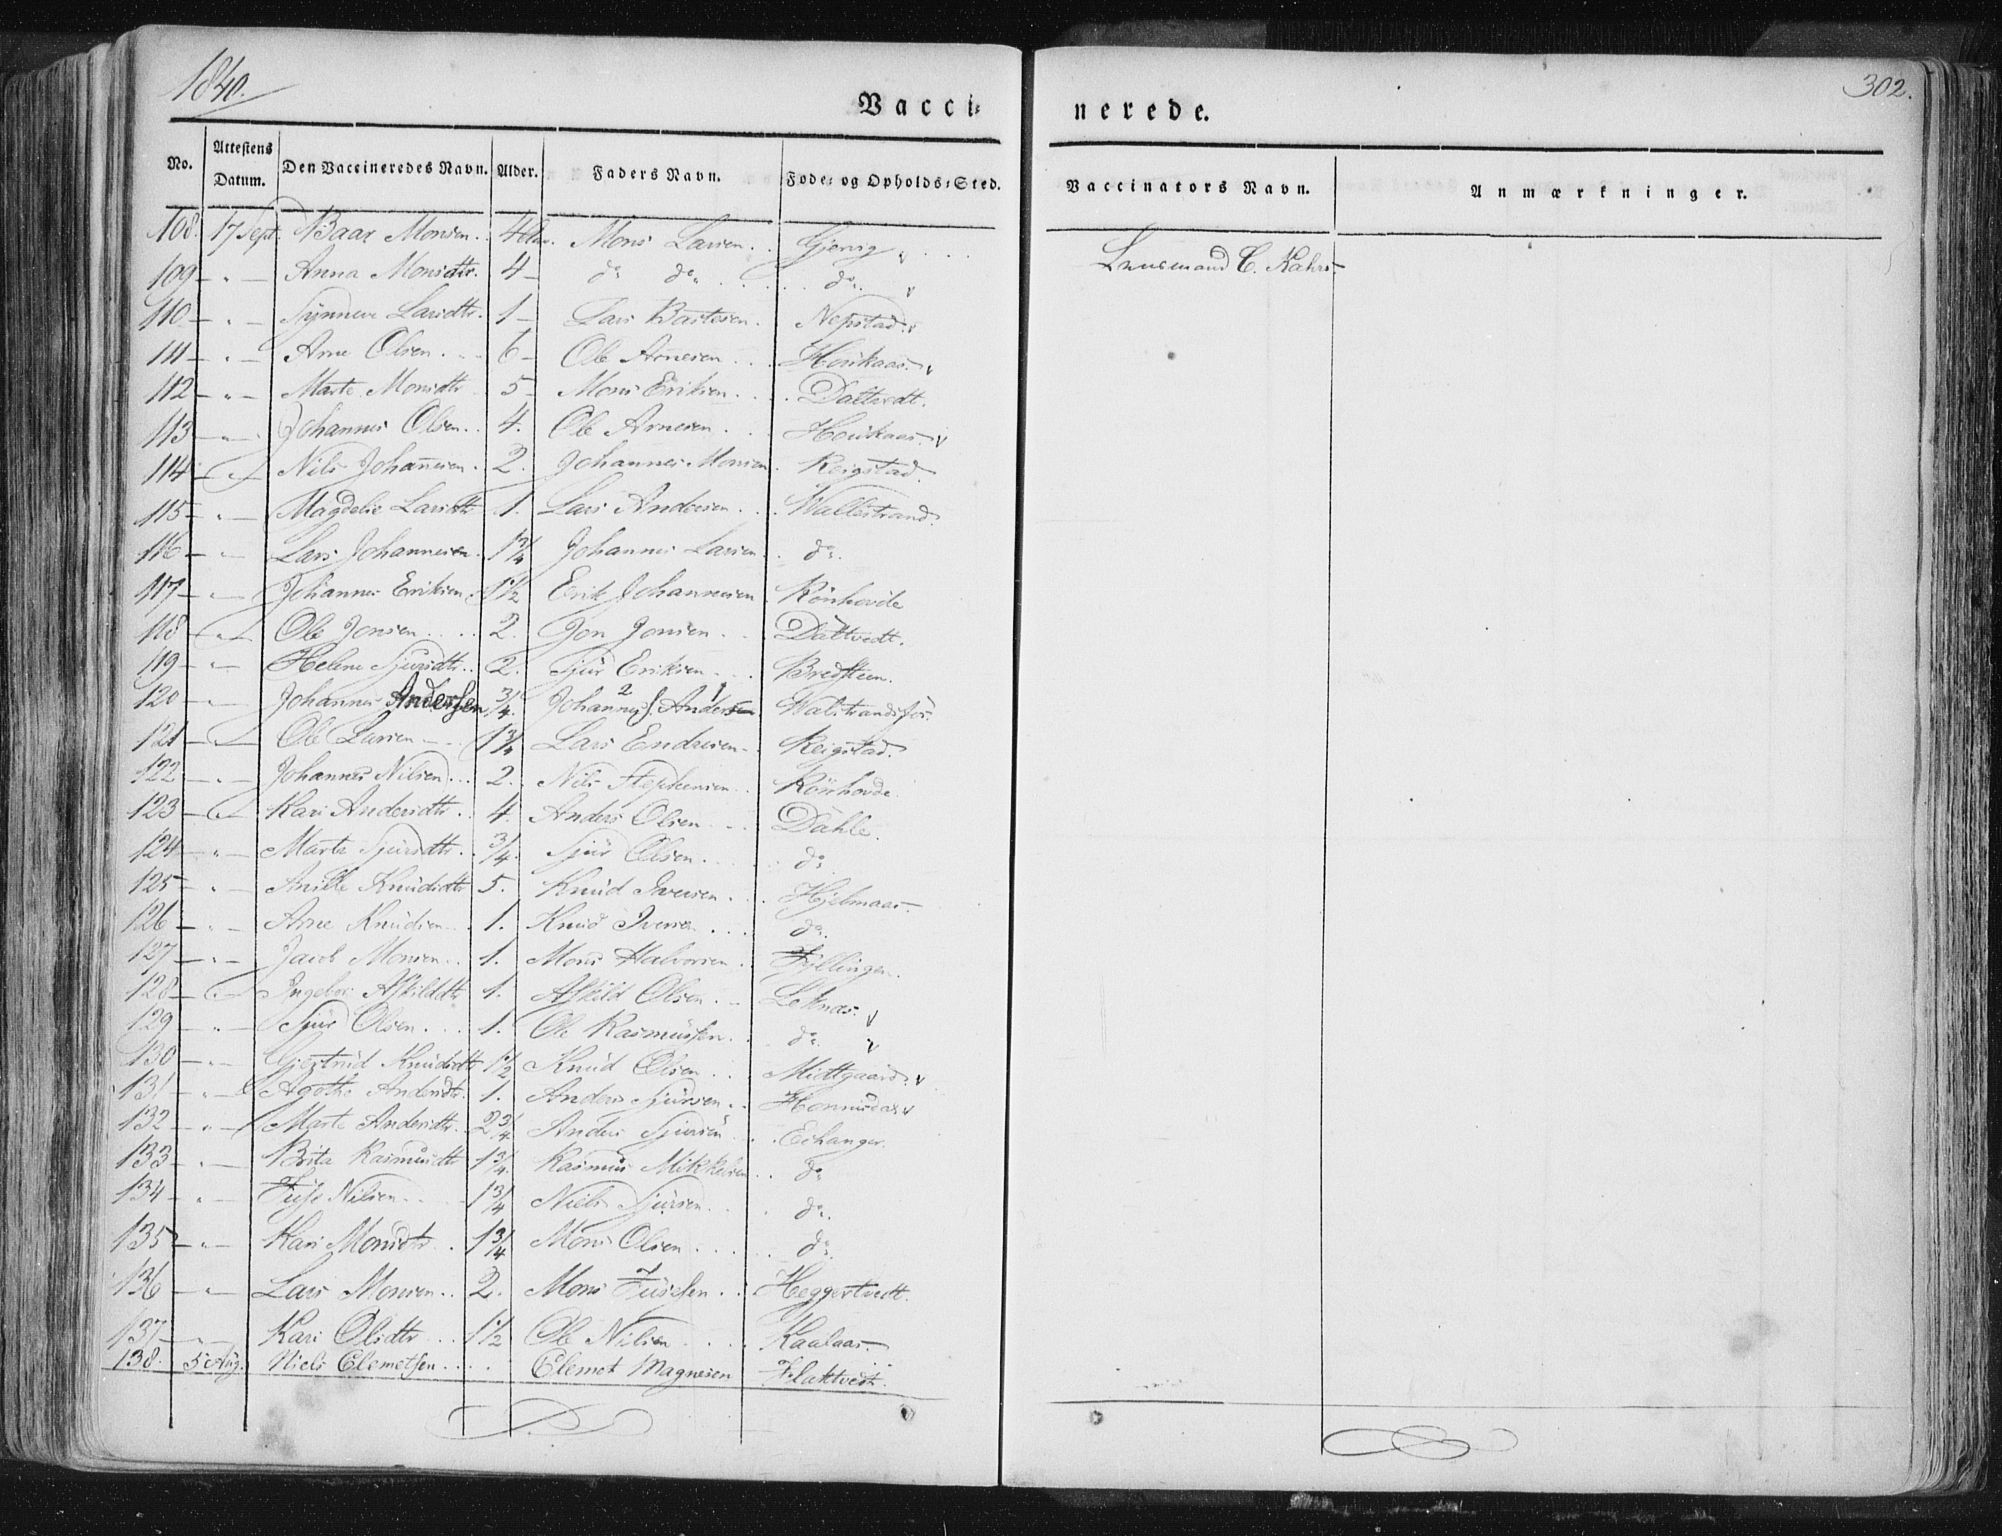 1840.
302.
Vacci= nerede.
No. Attestens Datum. Den Vaccineredes Navn. Alder. Faders Navn. Føde= og Opholds=Sted. Vaccinators Navn. Anmærkninger.
108. 17 Sept. Baar Monsen. 4 Mons Larsen. Gjervig Lensmand C. Kahrs
109 - " - Anna Monsdtr. 4 - do do do
110 - " - Synneve Larsdtr. 1 - Lars Bartesen. Nepstad.
111 - " - Arne Olsen. 6 - Ole Arnesen Houkaas.
112 - " - Marte Monsdtr 5 - Mons Eriksen. Daltvedt.
113 - " - Johannes Olsen. 4. Ole Arnesen. Houkaas.
114 - " - Nils Johannesen. 2. Johannes Monsen Reigstad.
115 - " - Magdelie Larsdtr 1. Lars Andersen. Wallestrand.
116 - " - Lars Johannesen. 1 3/4 Johannes Larsen do.
117 - " - Johannes Eriksen. 1 1/2 Erik Johannesen Rönhovde
118 - " - Ole Jonsen. 2. Jon Jonsen. Daltvedt.
119 - " - Helene Sjursdtr. 2. Sjur Eriksen. Bredsteen.
120 - " - Johannes Andersen 3/4. Johannes J. Andersen Walstrandsfos.
121 - " - Ole Larsen 1 3/4 Lars Endresen Reigstad.
122 - " - Johannes Nilsen. 2. Nils Stephensen. Rönhovde.
123 - " - Kari Andersdtr. 4. Anders Olsen Dahle.
124 - " - Marta Sjursdtr. 3/4. Sjur Olsen. do
125 - " - Anille Knudsdtr 5. Knud Iversen. Hjelmaas.
126 - " - Arne Knudsen. 1. Knud Iversen do.
127 - " - Jacob Monsen. 1. Mons Halvorsen. Fyllingen.
128 - " - Ingebor Askilddtr 1. Askild Olsen. Leknæs.
129 - " - Sjur Olsen. 1. Ole Rasmussen. do.
130 - " - Giertrud Knudsdtr 1 1/2 Knud Olsen. Midtgaard.
131 - " - Agothe Andersdtr. 1. Anders Sjursen. Honnisdal
132 - " - Marte Andersdtr. 2 3/4. Anders Sjursen Echanger.
133 - " - Brita Rasmusdtr 1 3/4. Rasmus Mikkelsen. do
134 - " - Fuse Nilsen 1 3/4 Niels Sjursen. do.
135 - " - Kari Monsdtr. 1 3/4 Mons Olsen do.
136 - " - Lars Monsen. 2. Mons Fusesen. Heggertvedt.
137 - " - Kari Olsdtr. 1 1/2 Ole Nilsen Kaalaas.
138. 5 Aug. Niels Clemetsen Clemet Magnesen Flaktvedt.